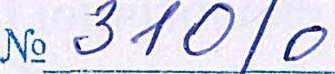 № 310/0